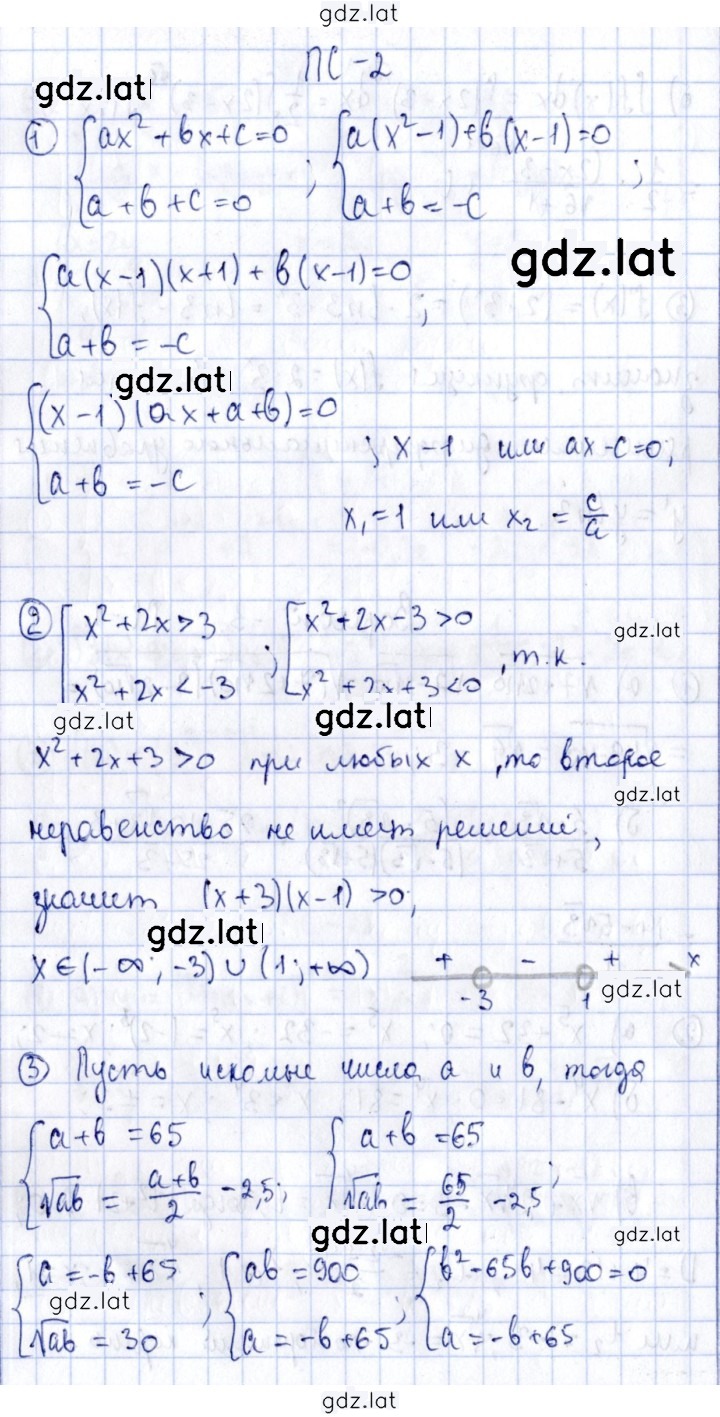 gdz.lat
ПС-2
gdz.lat
① { ax² + bx + c = 0 ; { a(x² - 1) + b(x - 1) = 0 ;
a + b + c = 0 a + b = -c
{ a(x - 1)(x + 1) + b(x - 1) = 0 ;
gdz.lat
a + b = -c
gdz.lat
{ (x - 1)(ax + a + b) = 0
a + b = -c ; x - 1 или ax - c = 0;
x₁ = 1 или x₂ = c/a
② [ x² + 2x > 3 ; [ x² + 2x - 3 > 0
gdz.lat
x² + 2x < -3 x² + 2x + 3 < 0 , т.к.
gdz.lat gdz.lat
x² + 2x + 3 > 0 при любых x, то второе
gdz.lat
неравенство не имеет решений,
значит (x + 3)(x - 1) > 0;
gdz.lat
x ∈ (-∞; -3) ∪ (1; +∞) + - + x
-3 1 gdz.lat
③ Пусть искомые числа a и b, тогда
{ a + b = 65 { a + b = 65
√ab = (a+b)/2 - 2,5; √ab = 65/2 - 2,5 ;
gdz.lat gdz.lat
{ a = -b + 65 ; { ab = 900 ; { b² - 65b + 900 = 0
gdz.lat
√ab = 30 a = -b + 65 a = -b + 65
gdz.lat